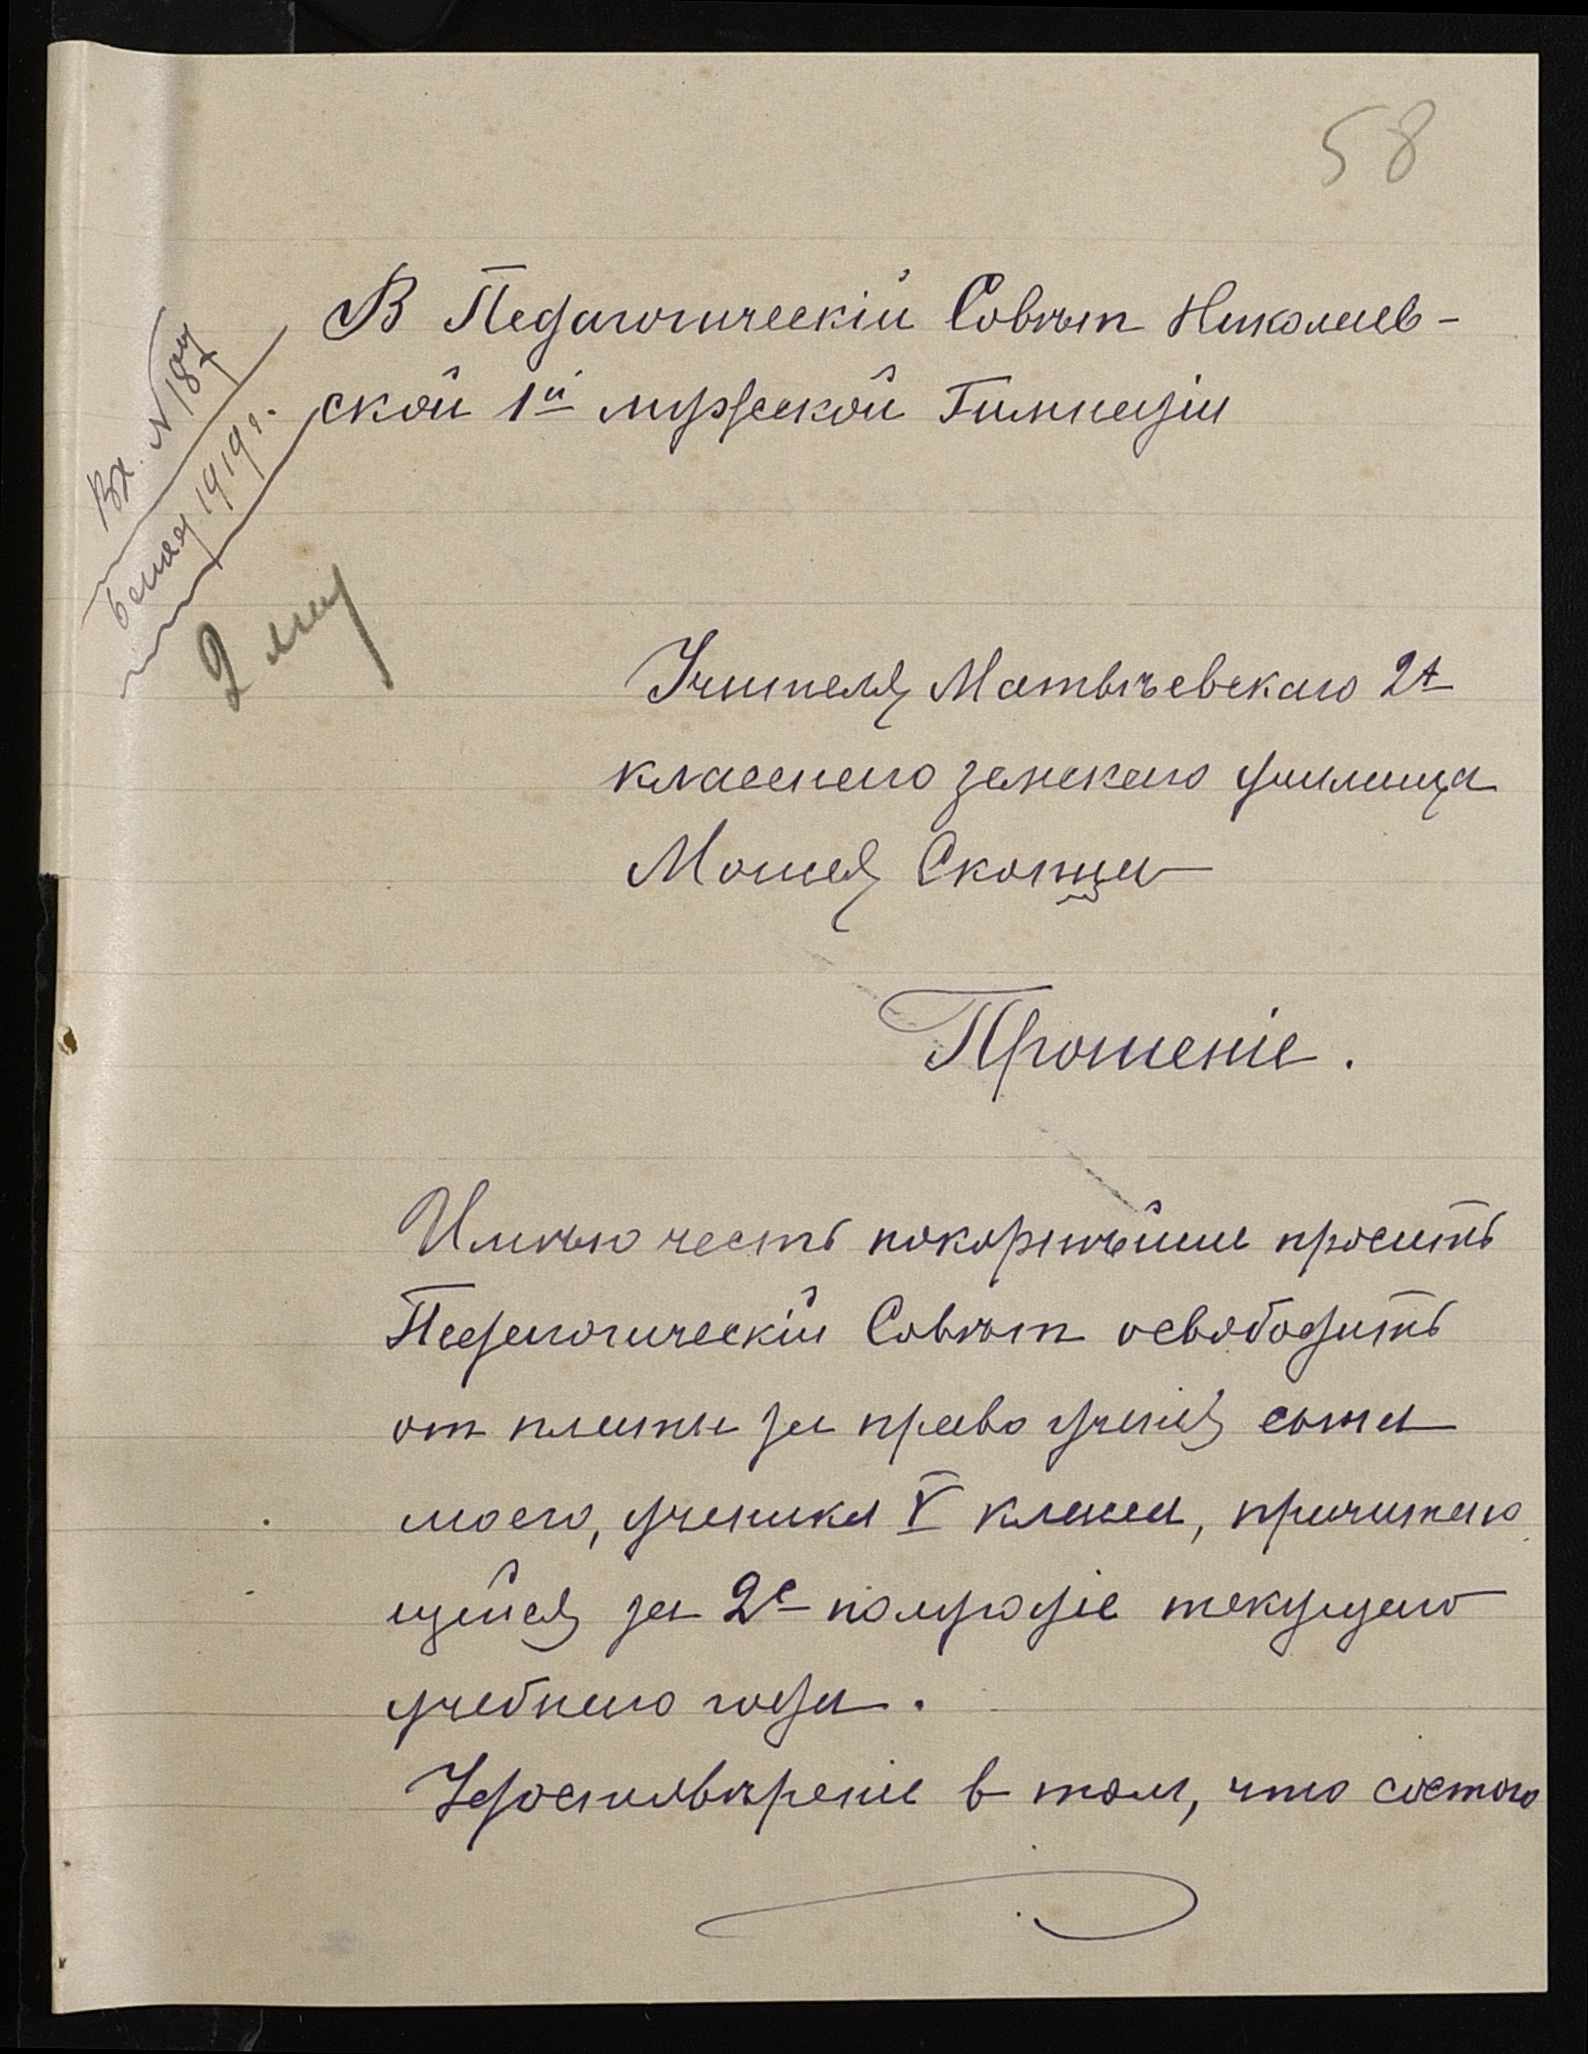 58
Вх. N 187
1919 г.
2
В Педагогическій Совѣт Николаев-
ской 1й мужской Гимназіи
Учителя Матвѣевскаго 2х
класснаго земскаго училища
Моисея Скопца
Прошеніе.
Имѣю честь покорнѣйше просить
Педагогическій Совѣт освободить
от платы за право ученія сына
моего, ученика V класса, причитаю
щейся за 2е полугодіе текущаго
учебнаго года.
Удостовѣреніе в том, что состою